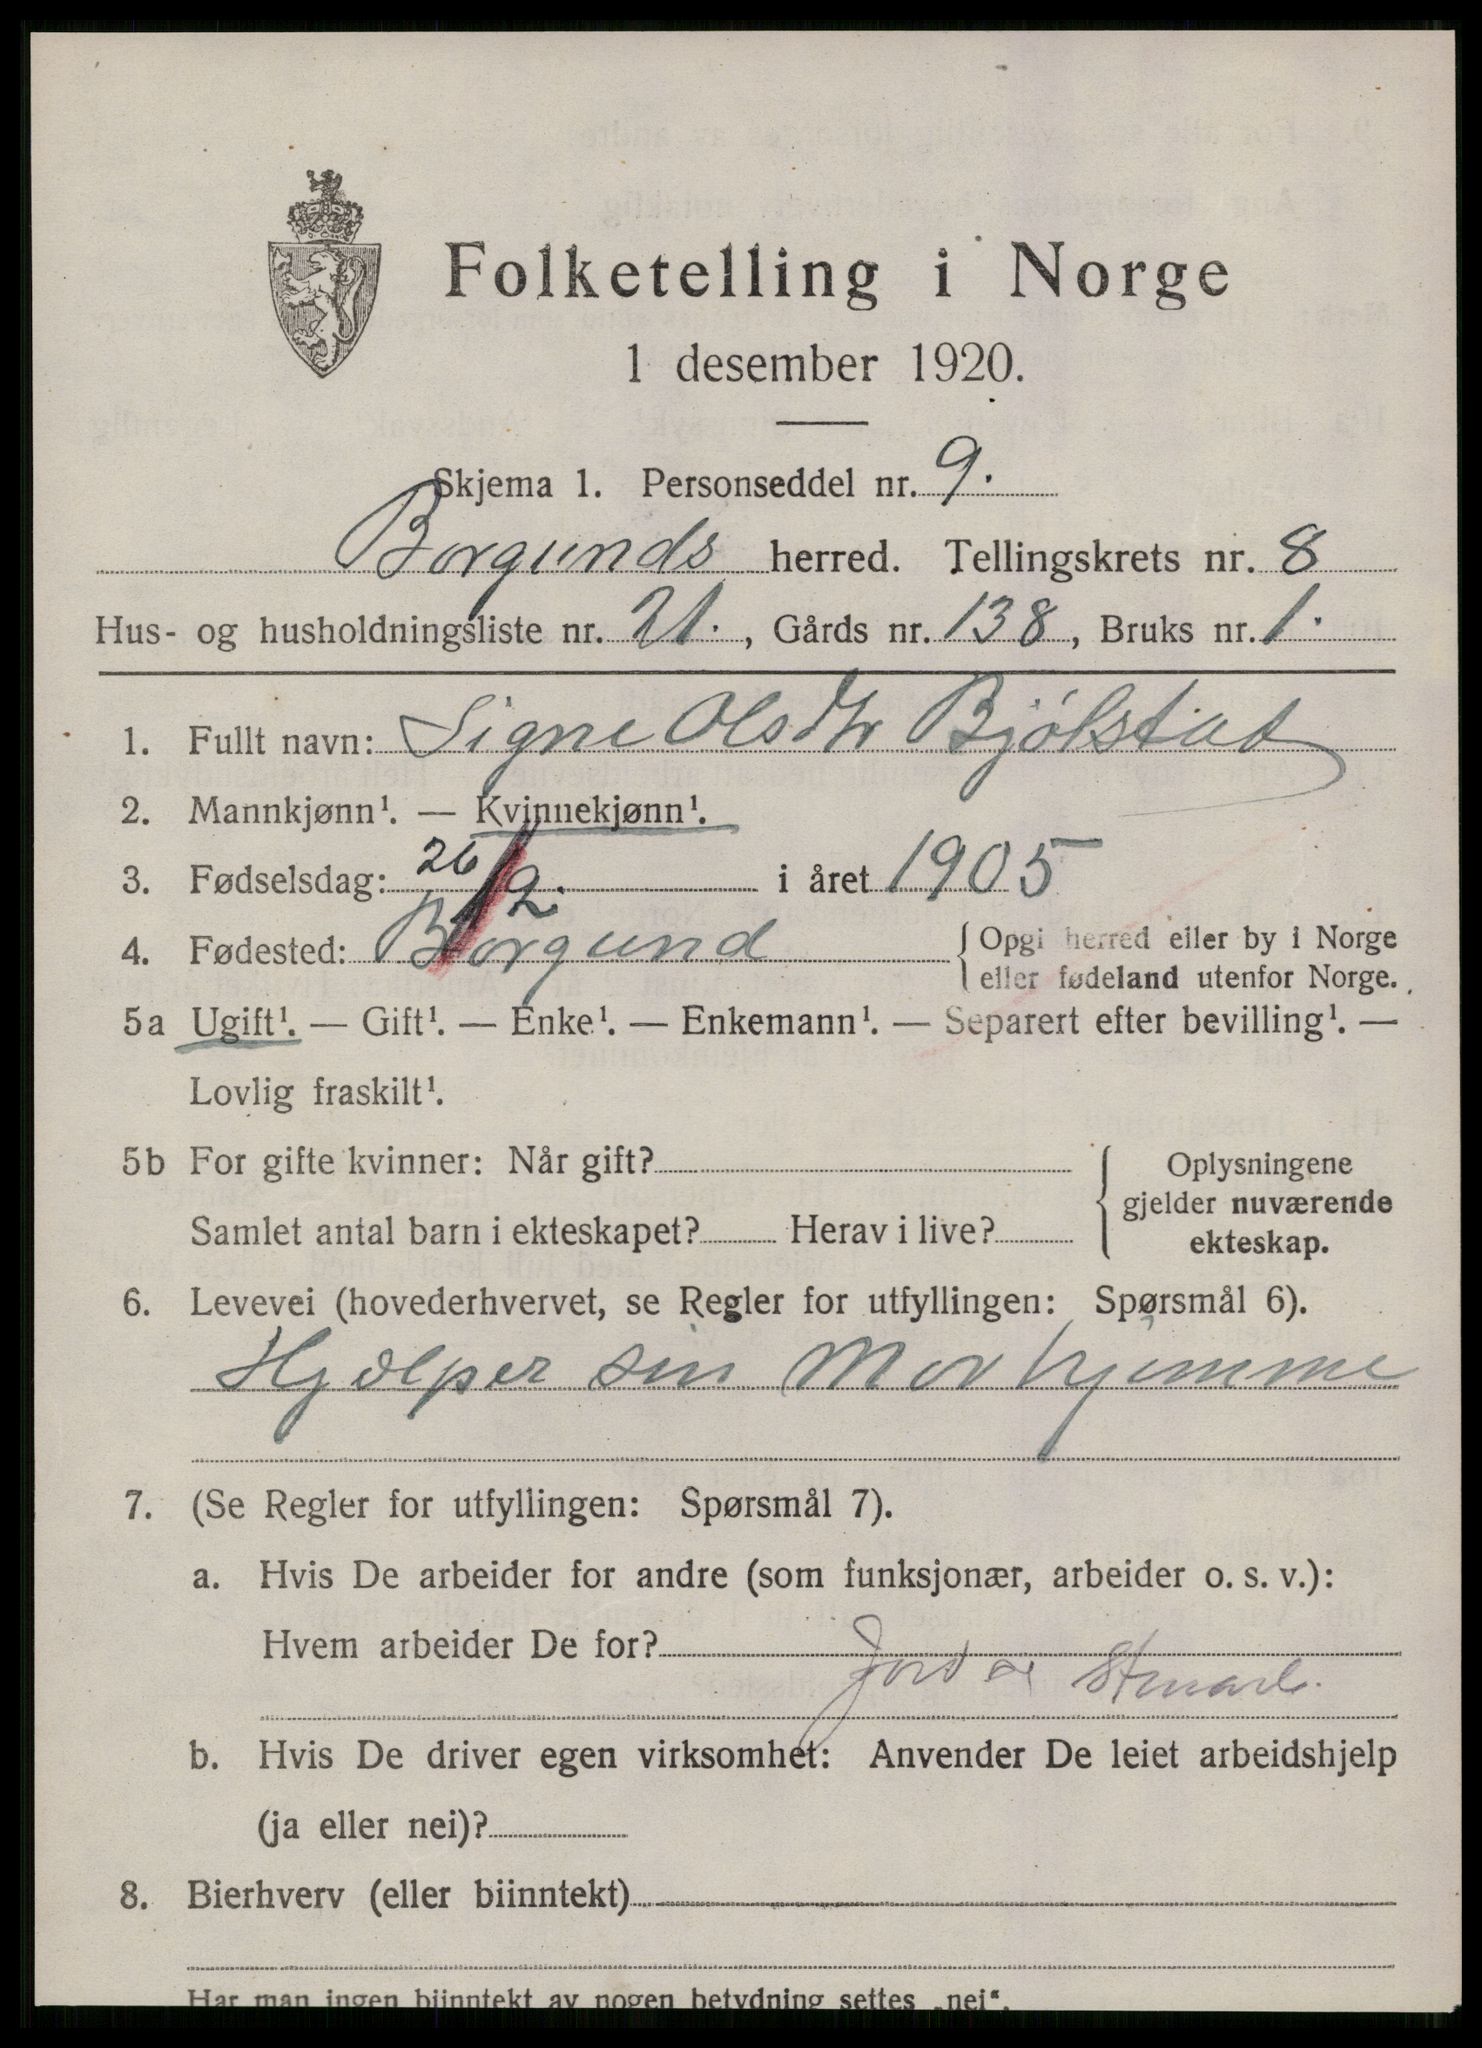 Folketelling i Norge
1 desember 1920.
Skjema 1. Personseddel nr. 9.
Borgunds herred. Tellingskrets nr. 8
Hus- og husholdningsliste nr. 21., Gårds nr. 138, Bruks nr. 1.
1. Fullt navn: Signe Olsdtr Bjölstad
2. Mannkjønn¹. — Kvinnekjønn¹.
3. Fødselsdag: 26/2. i året 1905
4. Fødested: Borgund { Opgi herred eller by i Norge
eller fødeland utenfor Norge.
5a Ugift¹. — Gift¹. — Enke¹. — Enkemann¹. — Separert efter bevilling¹. —
Lovlig fraskilt¹.
5b For gifte kvinner: Når gift?
Samlet antal barn i ekteskapet? Herav i live?
{ Oplysningene
gjelder nuværende
ekteskap.
6. Levevei (hovederhvervet, se Regler for utfyllingen: Spørsmål 6).
Hjælper sin Mor hjemme
7. (Se Regler for utfyllingen: Spørsmål 7).
a. Hvis De arbeider for andre (som funksjonær, arbeider o. s. v.):
Hvem arbeider De for?
b. Hvis De driver egen virksomhet: Anvender De leiet arbeidshjelp
(ja eller nei)?
8. Bierhverv (eller biinntekt)
Har man ingen biinntekt av nogen betydning settes „nei“.